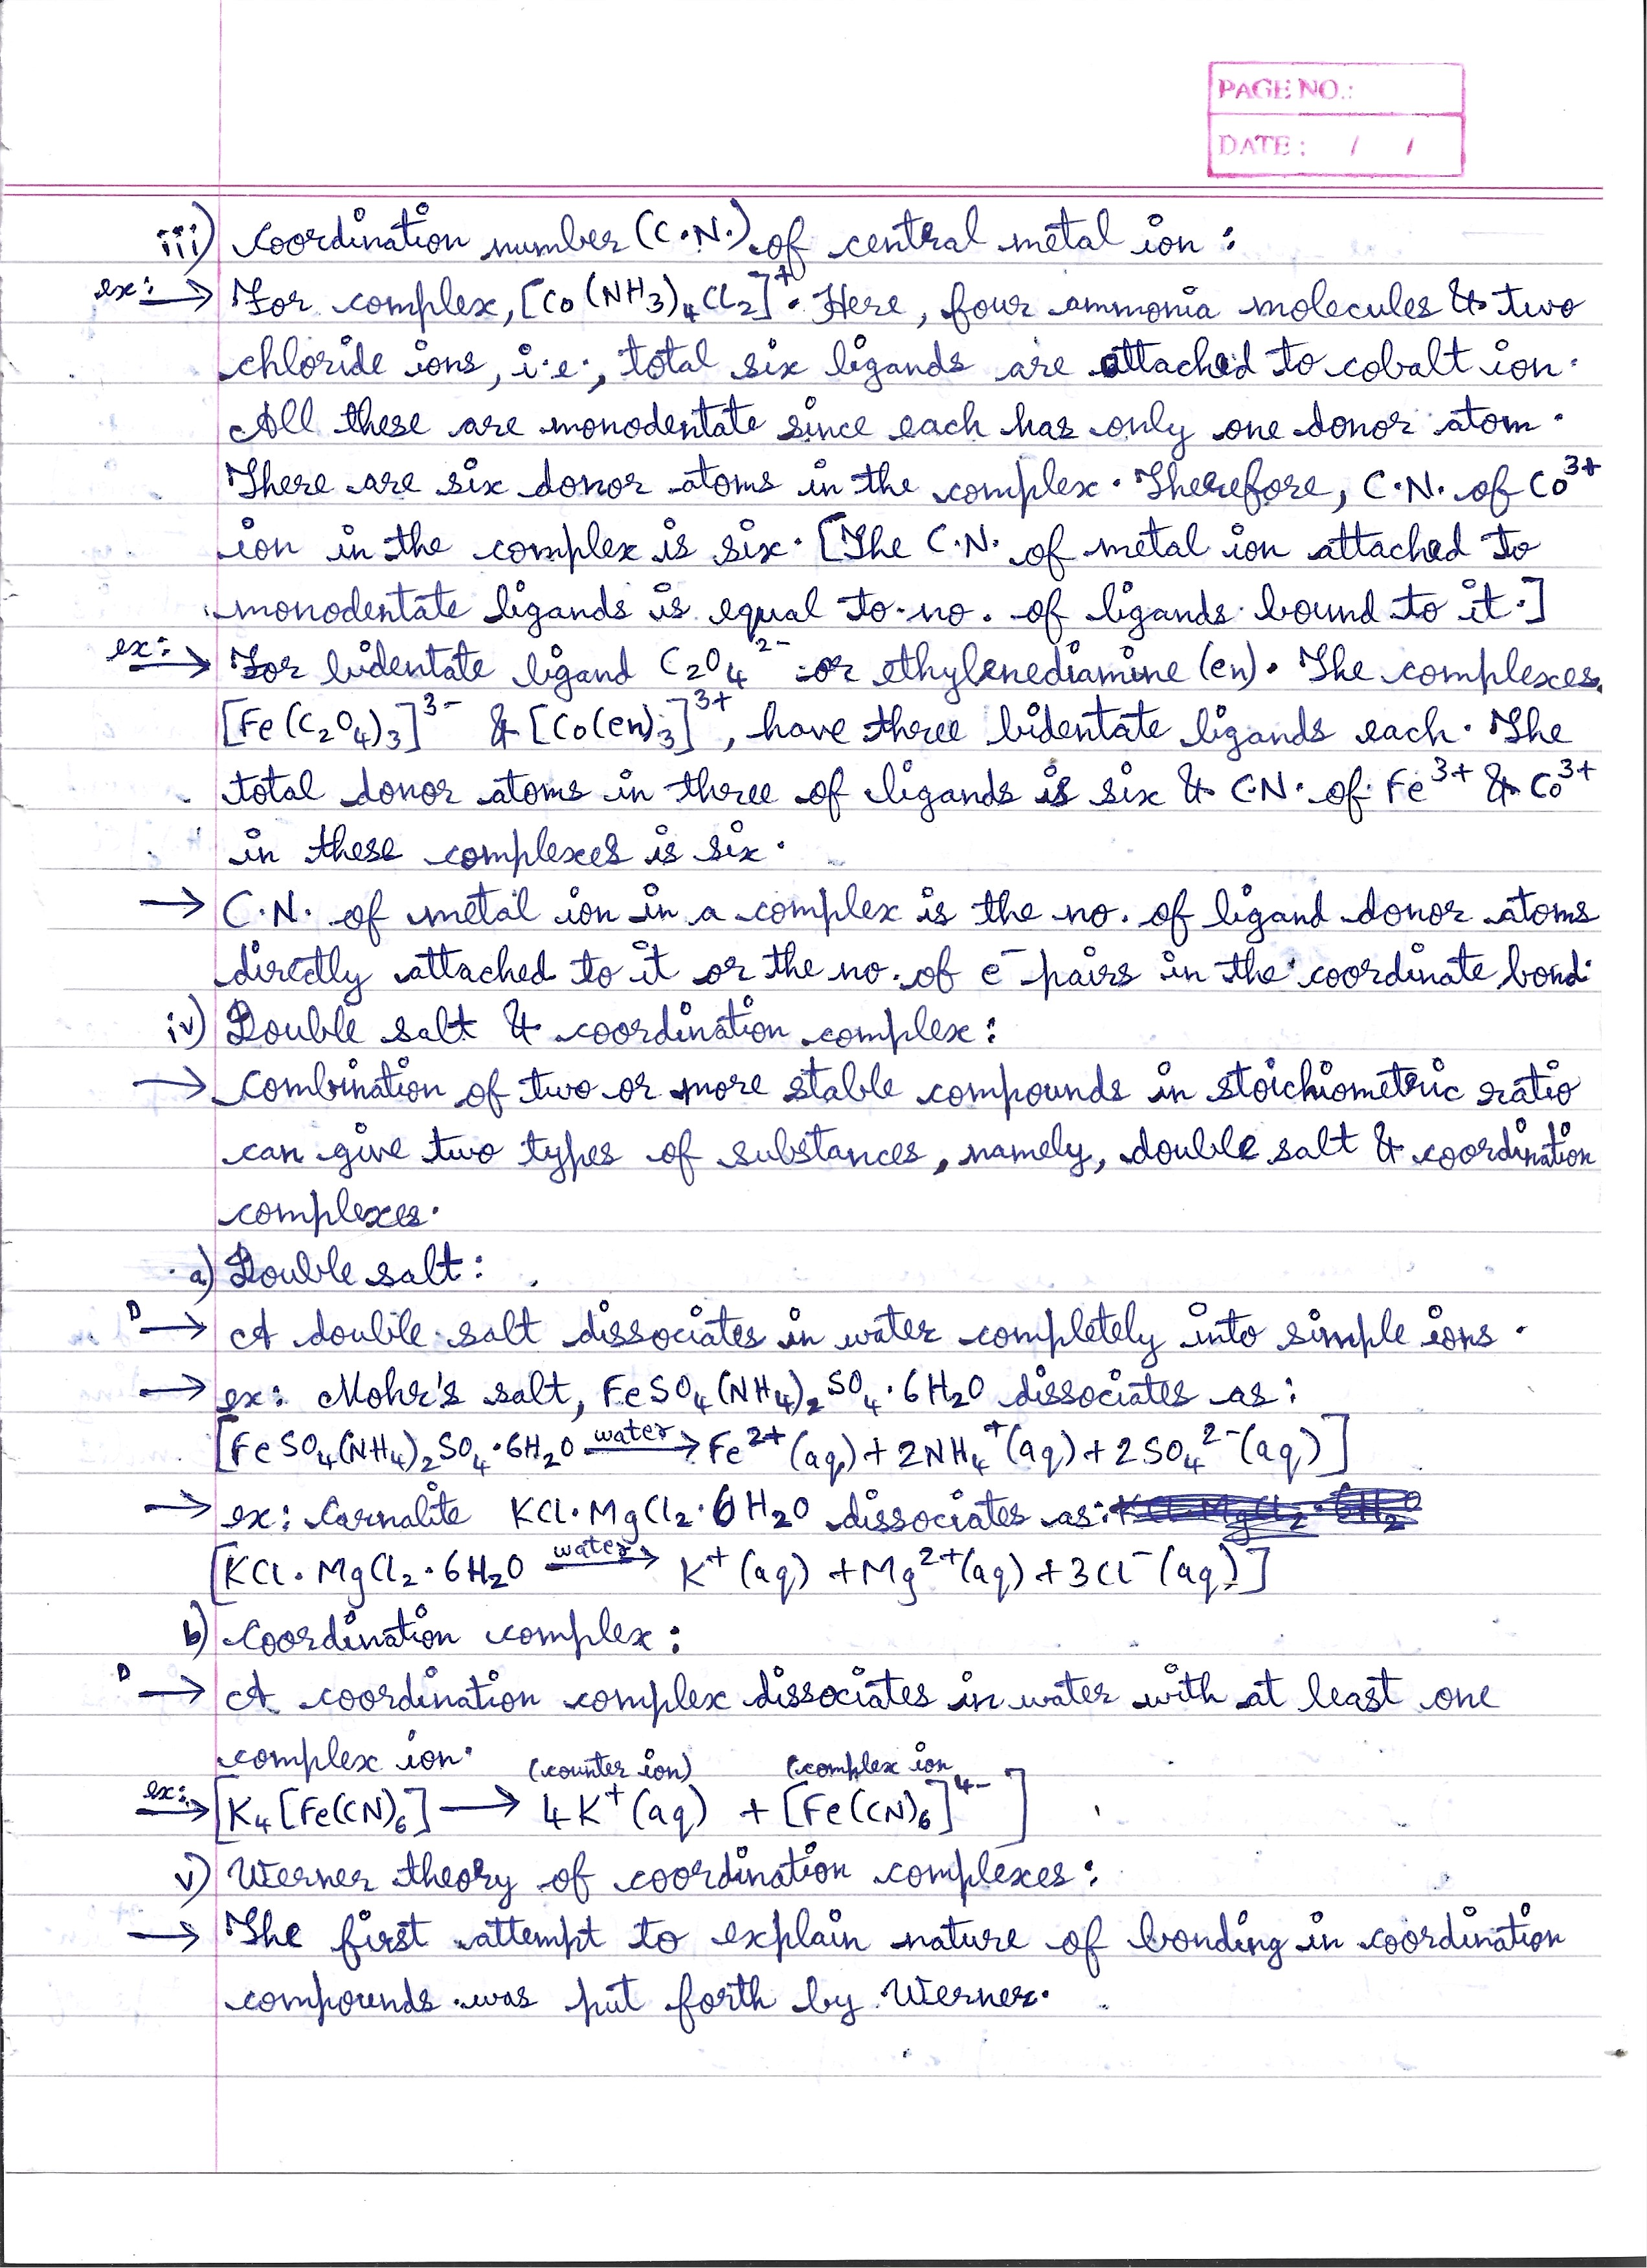 PAGE NO.:
DATE: / /
iii) Coordination number (C.N.) of central metal ion :
ex: → For complex, [Co(NH3)4Cl2]⁺. Here, four ammonia molecules & two
chloride ions, i.e., total six ligands are attached to cobalt ion.
All these are monodentate since each has only one donor atom.
There are six donor atoms in the complex. Therefore, C.N. of Co³⁺
ion in the complex is six. [The C.N. of metal ion attached to
monodentate ligands is equal to no. of ligands bound to it.]
ex: → For bidentate ligand C₂O₄²⁻ or ethylenediamine (en). The complexes,
[Fe(C₂O₄)₃]³⁻ & [Co(en)₃]³⁺, have three bidentate ligands each. The
total donor atoms in three of ligands is six & C.N. of Fe³⁺ & Co³⁺
in these complexes is six.
→ C.N. of metal ion in a complex is the no. of ligand donor atoms
directly attached to it or the no. of e⁻ pairs in the coordinate bond.
iv) Double salt & coordination complex :
→ Combination of two or more stable compounds in stoichiometric ratio
can give two types of substances, namely, double salt & coordination
complexes.
a) Double salt :
D → A double salt dissociates in water completely into simple ions.
→ ex: Mohr's salt, FeSO₄(NH₄)₂SO₄·6H₂O dissociates as :
[FeSO₄(NH₄)₂SO₄·6H₂O water→ Fe²⁺(aq) + 2NH₄⁺(aq) + 2SO₄²⁻(aq)]
→ ex: Carnalite KCl·MgCl₂·6H₂O dissociates as : KCl·MgCl₂·6H₂O
[KCl·MgCl₂·6H₂O water→ K⁺(aq) + Mg²⁺(aq) + 3Cl⁻(aq)]
b) Coordination complex :
D → A coordination complex dissociates in water with at least one
complex ion. (counter ion) (complex ion
ex: → [K₄[Fe(CN)₆] → 4K⁺(aq) + [Fe(CN)₆]⁴⁻]
v) Werner theory of coordination complexes :
→ The first attempt to explain nature of bonding in coordination
compounds was put forth by Werner.